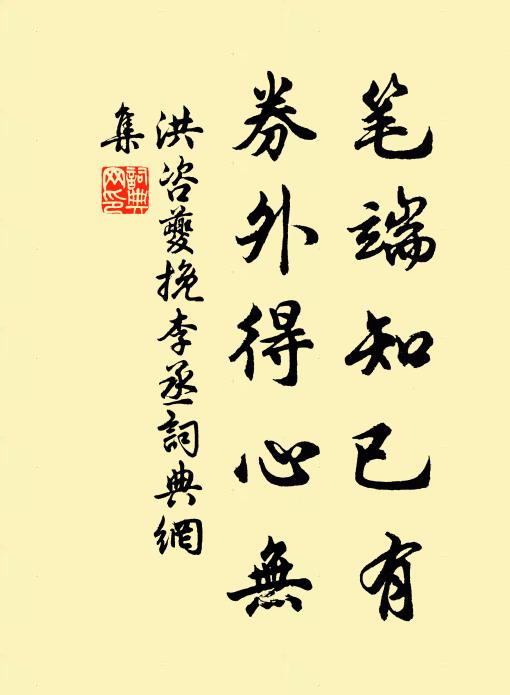 笔端知已有
券外得心無
洪咨夔挽李丞詞典網
集
詞典網印